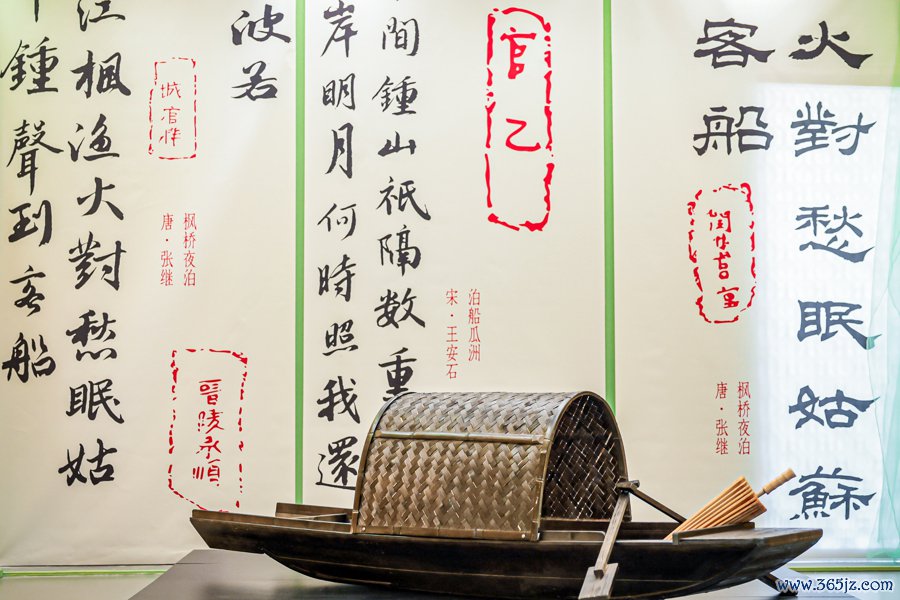 火對愁眠姑蘇
客船
枫桥夜泊
唐·张继
官乙
泊船瓜洲
宋·王安石
間鍾山祇隔数重
岸明月何時照我還
波若
枫桥夜泊
唐·张继
晉陵承順
江楓渔火對愁眠姑
鍾聲到客船
www.365jz.com